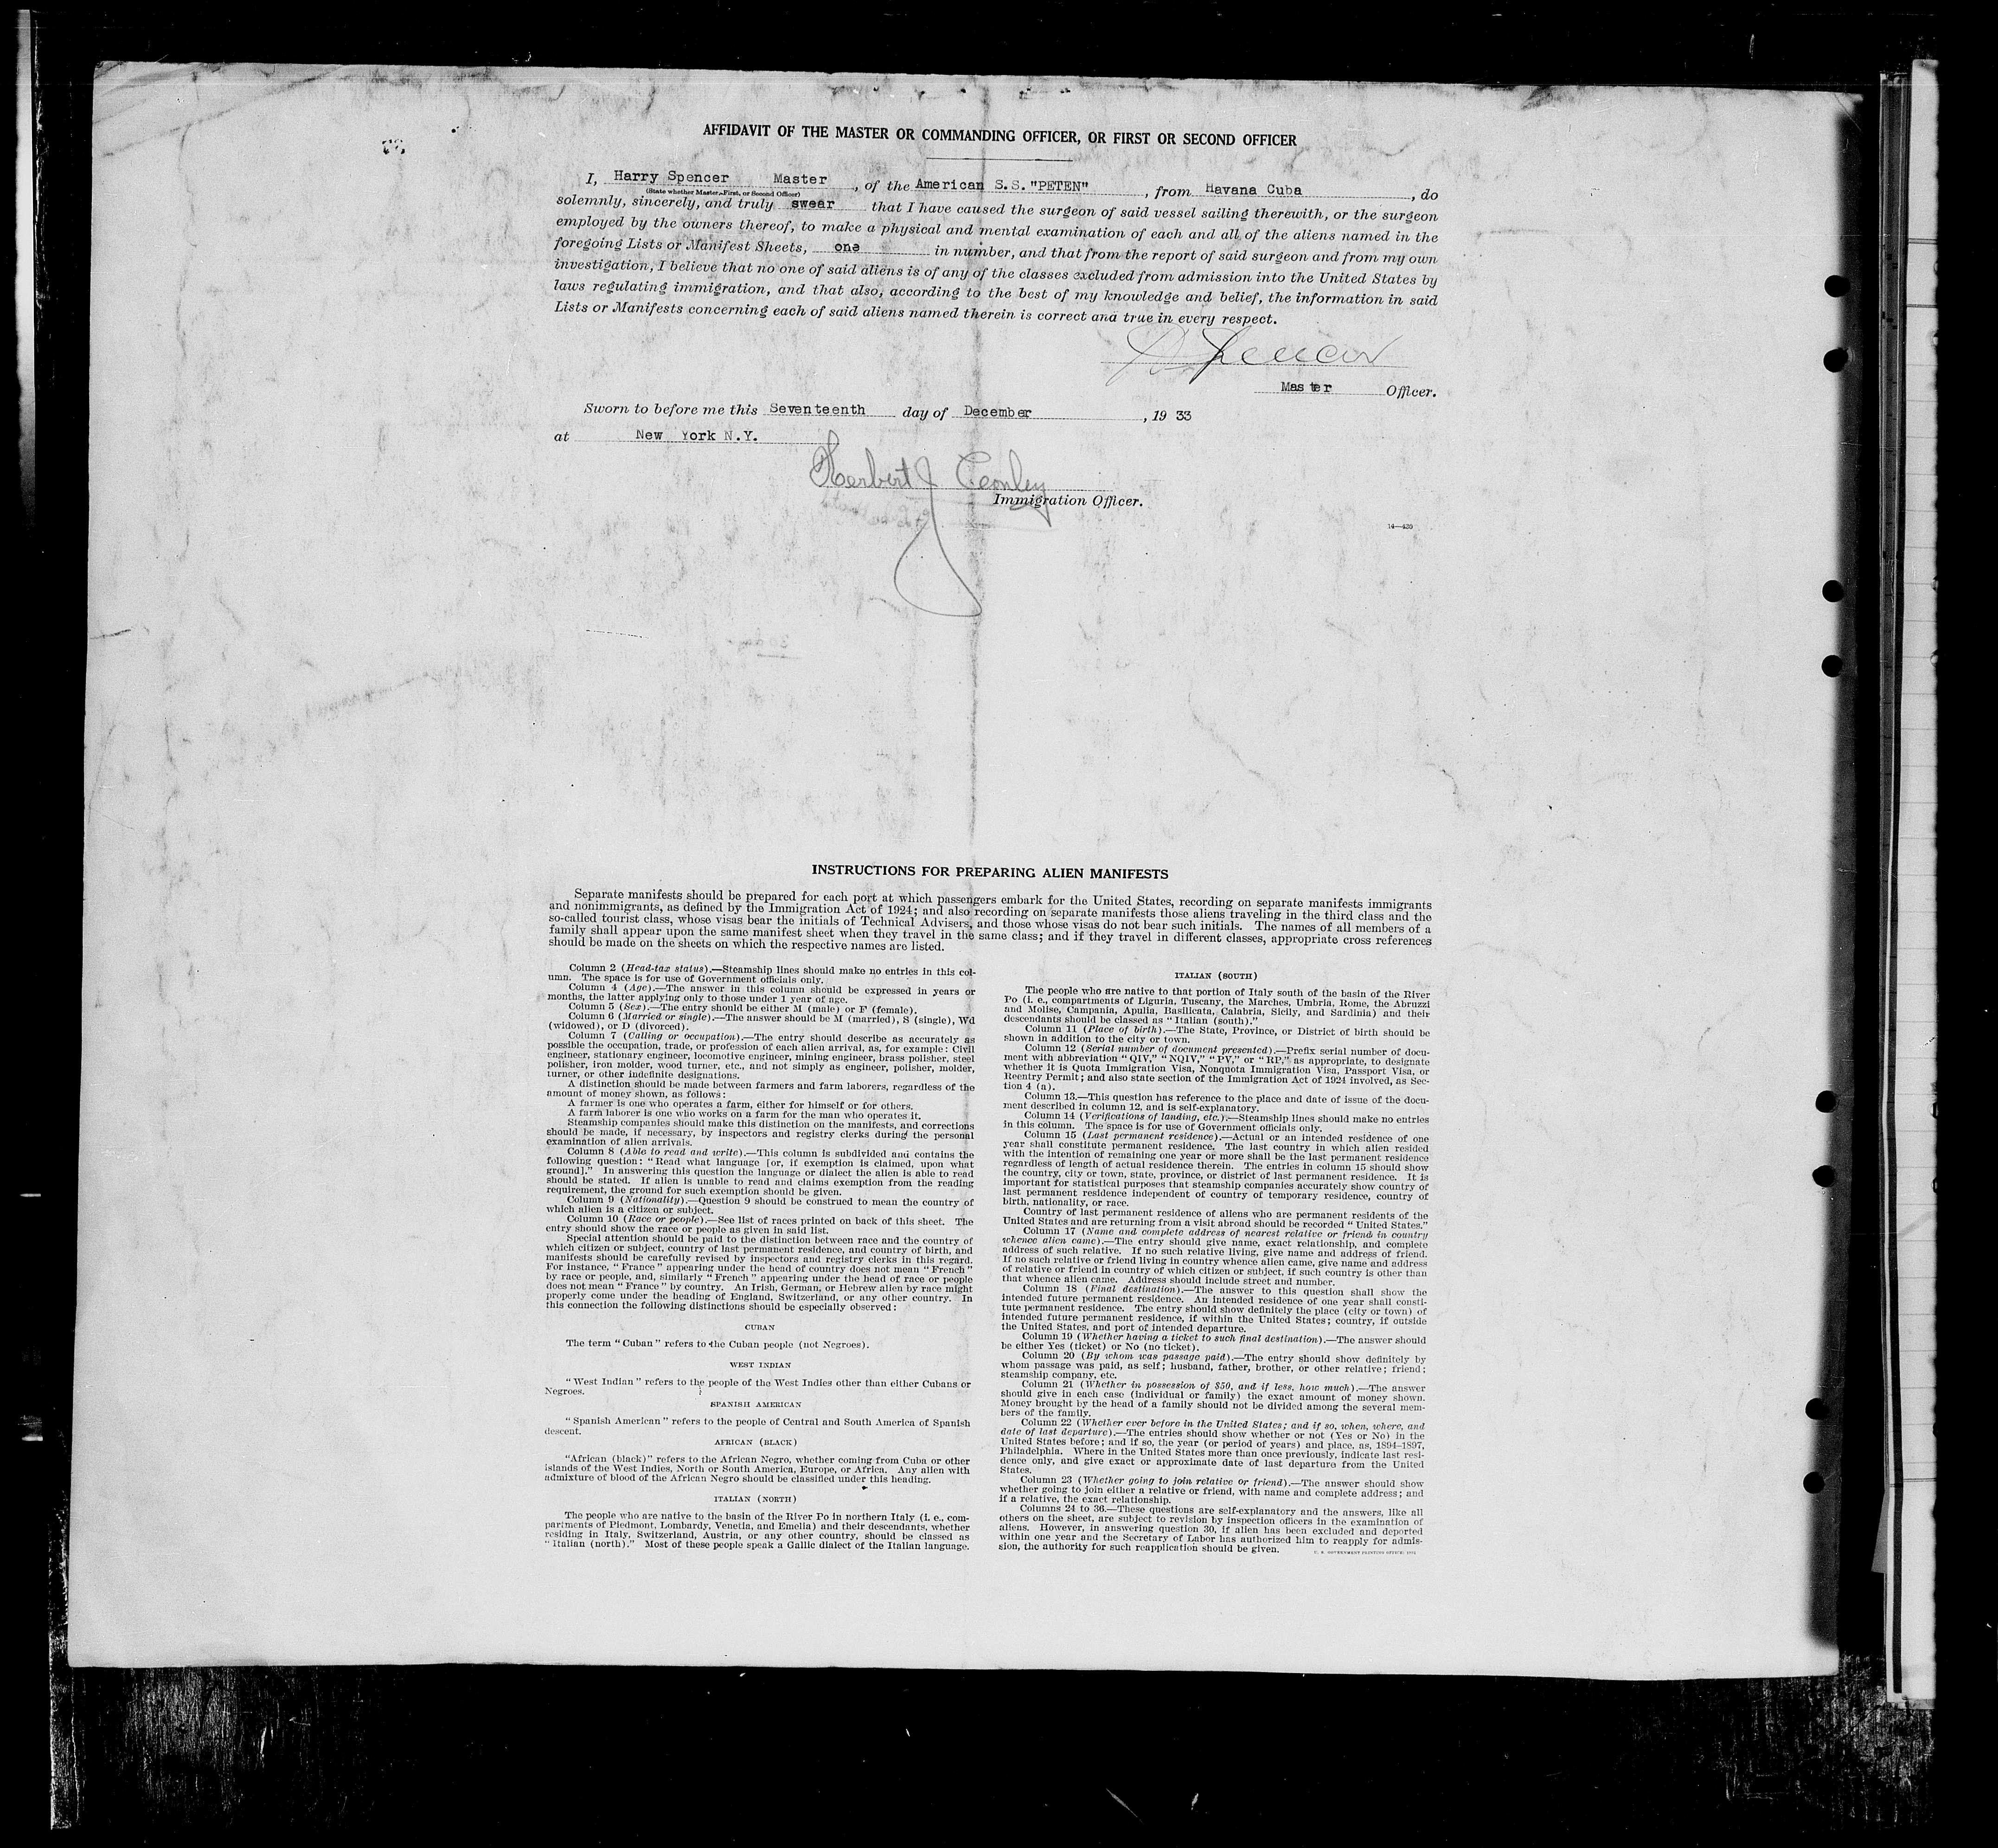 AFFIDAVIT OF THE MASTER OR COMMANDING OFFICER, OR FIRST OR SECOND OFFICER
I, Harry Spencer Master, of the American S.S. "PETEN", from Havana Cuba, do
(State whether Master, First, or Second Officer)
solemnly, sincerely, and truly swear that I have caused the surgeon of said vessel sailing therewith, or the surgeon
employed by the owners thereof, to make a physical and mental examination of each and all of the aliens named in the
foregoing Lists or Manifest Sheets, one in number, and that from the report of said surgeon and from my own
investigation, I believe that no one of said aliens is of any of the classes excluded from admission into the United States by
laws regulating immigration, and that also, according to the best of my knowledge and belief, the information in said
Lists or Manifests concerning each of said aliens named therein is correct and true in every respect.
Spencer
Master Officer.
Sworn to before me this Seventeenth day of December, 19 33
at New York N.Y.
Herbert J
Immigration Officer.
14—439
INSTRUCTIONS FOR PREPARING ALIEN MANIFESTS
Separate manifests should be prepared for each port at which passengers embark for the United States, recording on separate manifests immigrants
and nonimmigrants, as defined by the Immigration Act of 1924; and also recording on separate manifests those aliens traveling in the third class and the
so-called tourist class, whose visas bear the initials of Technical Advisers, and those whose visas do not bear such initials. The names of all members of a
family shall appear upon the same manifest sheet when they travel in the same class; and if they travel in different classes, appropriate cross references
should be made on the sheets on which the respective names are listed.
Column 2 (Head-tax status).—Steamship lines should make no entries in this col-
umn. The space is for use of Government officials only.
Column 4 (Age).—The answer in this column should be expressed in years or
months, the latter applying only to those under 1 year of age.
Column 5 (Sex).—The entry should be either M (male) or F (female).
Column 6 (Married or single).—The answer should be M (married), S (single), Wd
(widowed), or D (divorced).
Column 7 (Calling or occupation).—The entry should describe as accurately as
possible the occupation, trade, or profession of each alien arrival, as, for example: Civil
engineer, stationary engineer, locomotive engineer, mining engineer, brass polisher, steel
polisher, iron molder, wood turner, etc., and not simply as engineer, polisher, molder,
turner, or other indefinite designations.
A distinction should be made between farmers and farm laborers, regardless of the
amount of money shown, as follows:
A farmer is one who operates a farm, either for himself or for others.
A farm laborer is one who works on a farm for the man who operates it.
Steamship companies should make this distinction on the manifests, and corrections
should be made, if necessary, by inspectors and registry clerks during the personal
examination of alien arrivals.
Column 8 (Able to read and write).—This column is subdivided and contains the
following question: "Read what language [or, if exemption is claimed, upon what
ground]." In answering this question the language or dialect the alien is able to read
should be stated. If alien is unable to read and claims exemption from the reading
requirement, the ground for such exemption should be given.
Column 9 (Nationality).—Question 9 should be construed to mean the country of
which alien is a citizen or subject.
Column 10 (Race or people).—See list of races printed on back of this sheet. The
entry should show the race or people as given in said list.
Special attention should be paid to the distinction between race and the country of
which citizen or subject, country of last permanent residence, and country of birth, and
manifests should be carefully revised by inspectors and registry clerks in this regard.
For instance, "France" appearing under the head of country does not mean "French"
by race or people, and, similarly "French" appearing under the head of race or people
does not mean "France" by country. An Irish, German, or Hebrew alien by race might
properly come under the heading of England, Switzerland, or any other country. In
this connection the following distinctions should be especially observed:
CUBAN
The term "Cuban" refers to the Cuban people (not Negroes).
WEST INDIAN
"West Indian" refers to the people of the West Indies other than either Cubans or
Negroes.
SPANISH AMERICAN
"Spanish American" refers to the people of Central and South America of Spanish
descent.
AFRICAN (BLACK)
"African (black)" refers to the African Negro, whether coming from Cuba or other
islands of the West Indies, North or South America, Europe, or Africa. Any alien with
admixture of blood of the African Negro should be classified under this heading.
ITALIAN (NORTH)
The people who are native to the basin of the River Po in northern Italy (i. e., com-
partments of Piedmont, Lombardy, Venetia, and Emelia) and their descendants, whether
residing in Italy, Switzerland, Austria, or any other country, should be classed as
"Italian (north)." Most of these people speak a Gallic dialect of the Italian language.
ITALIAN (SOUTH)
The people who are native to that portion of Italy south of the basin of the River
Po (i. e., compartments of Liguria, Tuscany, the Marches, Umbria, Rome, the Abruzzi
and Molise, Campania, Apulia, Basilicata, Calabria, Sicily, and Sardinia) and their
descendants should be classed as "Italian (south)."
Column 11 (Place of birth).—The State, Province, or District of birth should be
shown in addition to the city or town.
Column 12 (Serial number of document presented).—Prefix serial number of docu-
ment with abbreviation "QIV," "NQIV," "PV," or "RP," as appropriate, to designate
whether it is Quota Immigration Visa, Nonquota Immigration Visa, Passport Visa, or
Reentry Permit; and also state section of the Immigration Act of 1924 involved, as Sec-
tion 4 (a).
Column 13.—This question has reference to the place and date of issue of the docu-
ment described in column 12, and is self-explanatory.
Column 14 (Verifications of landing, etc.).—Steamship lines should make no entries
in this column. The space is for use of Government officials only.
Column 15 (Last permanent residence).—Actual or an intended residence of one
year shall constitute permanent residence. The last country in which alien resided
with the intention of remaining one year or more shall be the last permanent residence
regardless of length of actual residence therein. The entries in column 15 should show
the country, city or town, state, province, or district of last permanent residence. It is
important for statistical purposes that steamship companies accurately show country of
last permanent residence independent of country of temporary residence, country of
birth, nationality, or race.
Country of last permanent residence of aliens who are permanent residents of the
United States and are returning from a visit abroad should be recorded "United States."
Column 17 (Name and complete address of nearest relative or friend in country
whence alien came).—The entry should give name, exact relationship, and complete
address of such relative. If no such relative living, give name and address of friend.
If no such relative or friend living in country whence alien came, give name and address
of relative or friend in country of which citizen or subject, if such country is other than
that whence alien came. Address should include street and number.
Column 18 (Final destination).—The answer to this question shall show the
intended future permanent residence. An intended residence of one year shall consti-
tute permanent residence. The entry should show definitely the place (city or town) of
intended future permanent residence, if within the United States; country, if outside
the United States, and port of intended departure.
Column 19 (Whether having a ticket to such final destination).—The answer should
be either Yes (ticket) or No (no ticket).
Column 20 (By whom was passage paid).—The entry should show definitely by
whom passage was paid, as self; husband, father, brother, or other relative; friend;
steamship company, etc.
Column 21 (Whether in possession of $50, and if less, how much).—The answer
should give in each case (individual or family) the exact amount of money shown.
Money brought by the head of a family should not be divided among the several mem-
bers of the family.
Column 22 (Whether ever before in the United States; and if so, when, where, and
date of last departure).—The entries should show whether or not (Yes or No) in the
United States before; and if so, the year (or period of years) and place, as, 1894-1897,
Philadelphia. Where in the United States more than once previously, indicate last resi-
dence only, and give exact or approximate date of last departure from the United
States.
Column 23 (Whether going to join relative or friend).—The answer should show
whether going to join either a relative or friend, with name and complete address; and
if a relative, the exact relationship.
Columns 24 to 36.—These questions are self-explanatory and the answers, like all
others on the sheet, are subject to revision by inspection officers in the examination of
aliens. However, in answering question 30, if alien has been excluded and deported
within one year and the Secretary of Labor has authorized him to reapply for admis-
sion, the authority for such reapplication should be given.